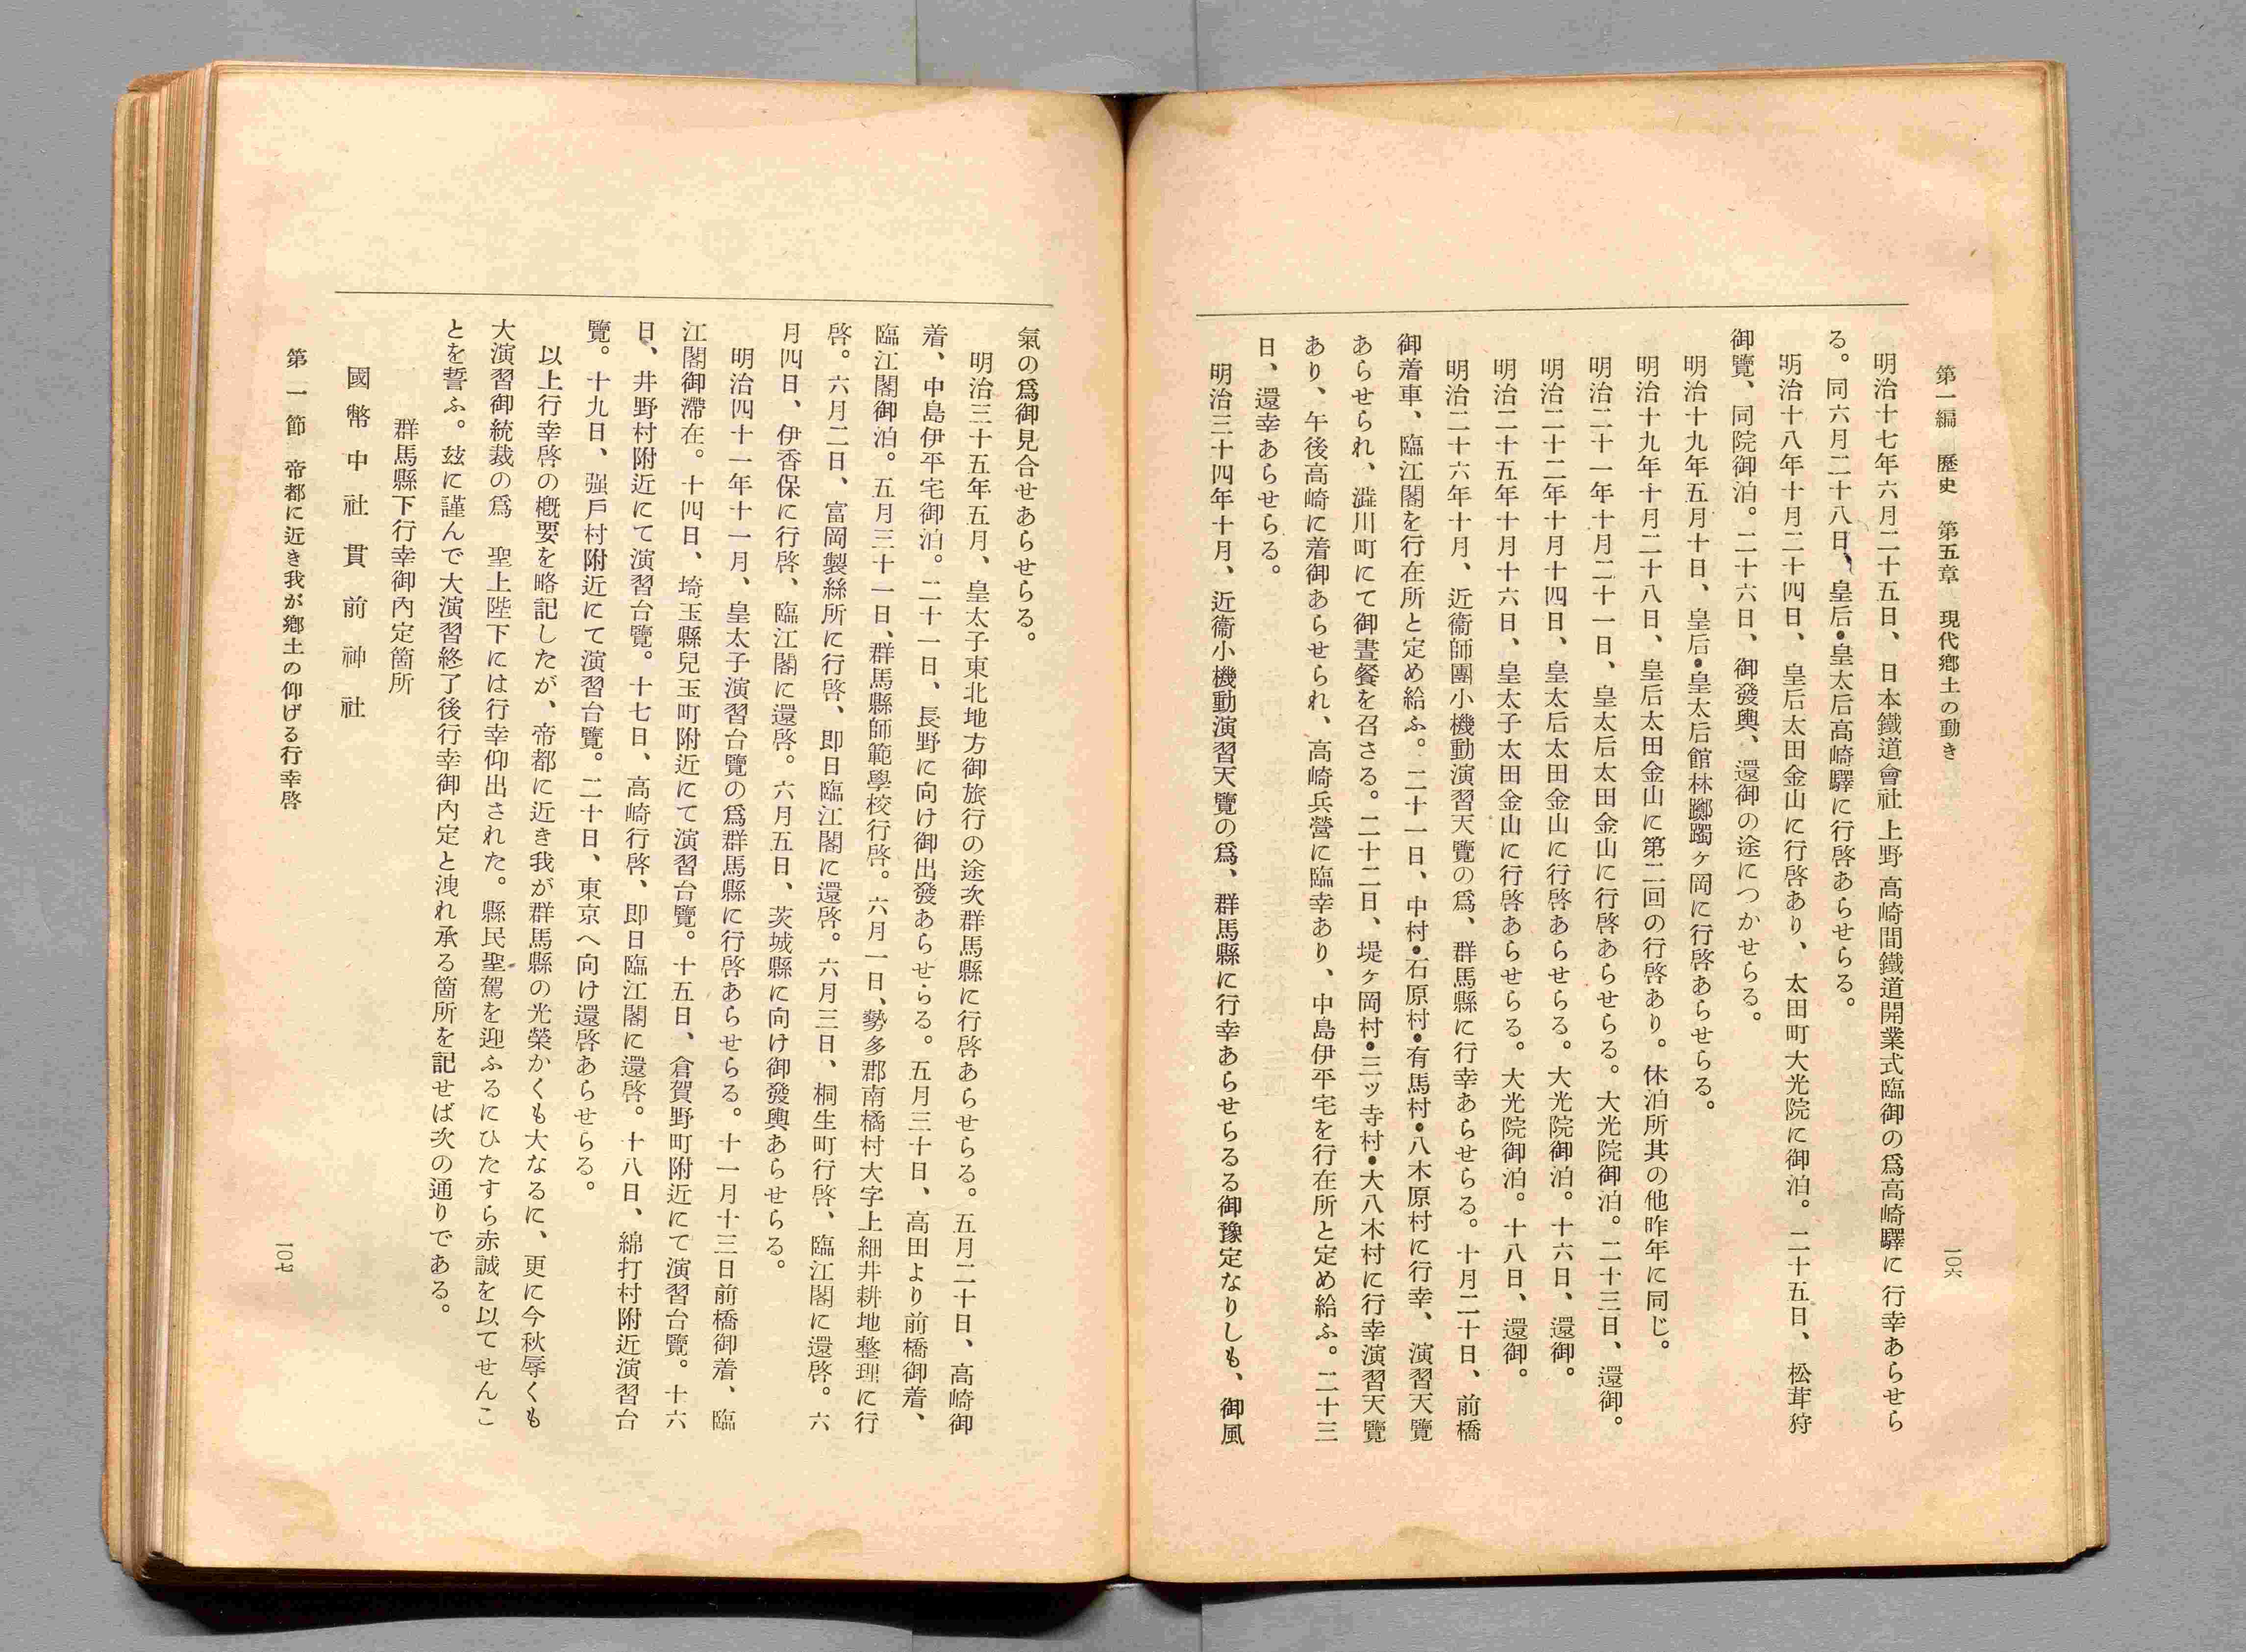 第一編　歷史　第五章　現代鄕土の動き
一〇六
明治十七年六月二十五日、日本鐵道會社上野高崎間鐵道開業式臨御の爲高崎驛に行幸あらせら
る。同六月二十八日、皇后•皇太后高崎驛に行啓あらせらる。
明治十八年十月二十四日、皇后太田金山に行啓あり、太田町大光院に御泊。二十五日、松茸狩
御覽、同院御泊。二十六日、御發輿、還御の途につかせらる。
明治十九年五月十日、皇后•皇太后館林躑躅ヶ岡に行啓あらせらる。
明治十九年十月二十八日、皇后太田金山に第二回の行啓あり。休泊所其の他昨年に同じ。
明治二十一年十月二十一日、皇太后太田金山に行啓あらせらる。大光院御泊。二十三日、還御。
明治二十二年十月十四日、皇太后太田金山に行啓あらせらる。大光院御泊。十六日、還御。
明治二十五年十月十六日、皇太子太田金山に行啓あらせらる。大光院御泊。十八日、還御。
明治二十六年十月、近衞師團小機動演習天覽の爲、群馬縣に行幸あらせらる。十月二十日、前橋
御着車、臨江閣を行在所と定め給ふ。二十一日、中村•石原村•有馬村•八木原村に行幸、演習天覽
あらせられ、澁川町にて御晝餐を召さる。二十二日、堤ヶ岡村•三ッ寺村•大八木村に行幸演習天覽
あり、午後高崎に着御あらせられ、高崎兵營に臨幸あり、中島伊平宅を行在所と定め給ふ。二十三
日、還幸あらせらる。
明治三十四年十月、近衞小機動演習天覽の爲、群馬縣に行幸あらせらるる御豫定なりしも、御風
氣の爲御見合せあらせらる。
明治三十五年五月、皇太子東北地方御旅行の途次群馬縣に行啓あらせらる。五月二十日、高崎御
着、中島伊平宅御泊。二十一日、長野に向け御出發あらせらる。五月三十日、高田より前橋御着、
臨江閣御泊。五月三十一日、群馬縣師範學校行啓。六月一日、勢多郡南橘村大字上細井耕地整理に行
啓。六月二日、富岡製絲所に行啓、即日臨江閣に還啓。六月三日、桐生町行啓、臨江閣に還啓。六
月四日、伊香保に行啓、臨江閣に還啓。六月五日、茨城縣に向け御發輿あらせらる。
明治四十一年十一月、皇太子演習台覽の爲群馬縣に行啓あらせらる。十一月十三日前橋御着、臨
江閣御滯在。十四日、埼玉縣兒玉町附近にて演習台覽。十五日、倉賀野町附近にて演習台覽。十六
日、井野村附近にて演習台覽。十七日、高崎行啓、即日臨江閣に還啓。十八日、綿打村附近演習台
覽。十九日、强戶村附近にて演習台覽。二十日、東京へ向け還啓あらせらる。
以上行幸啓の槪要を略記したが、帝都に近き我が群馬縣の光榮かくも大なるに、更に今秋辱くも
大演習御統裁の爲　聖上陛下には行幸仰出された。縣民聖駕を迎ふるにひたすら赤誠を以てせんこ
とを誓ふ。玆に謹んで大演習終了後行幸御內定と洩れ承る箇所を記せば次の通りである。
群馬縣下行幸御內定箇所
國幣中社貫前神社
第一節　帝都に近き我が鄕土の仰げる行幸啓
一〇七